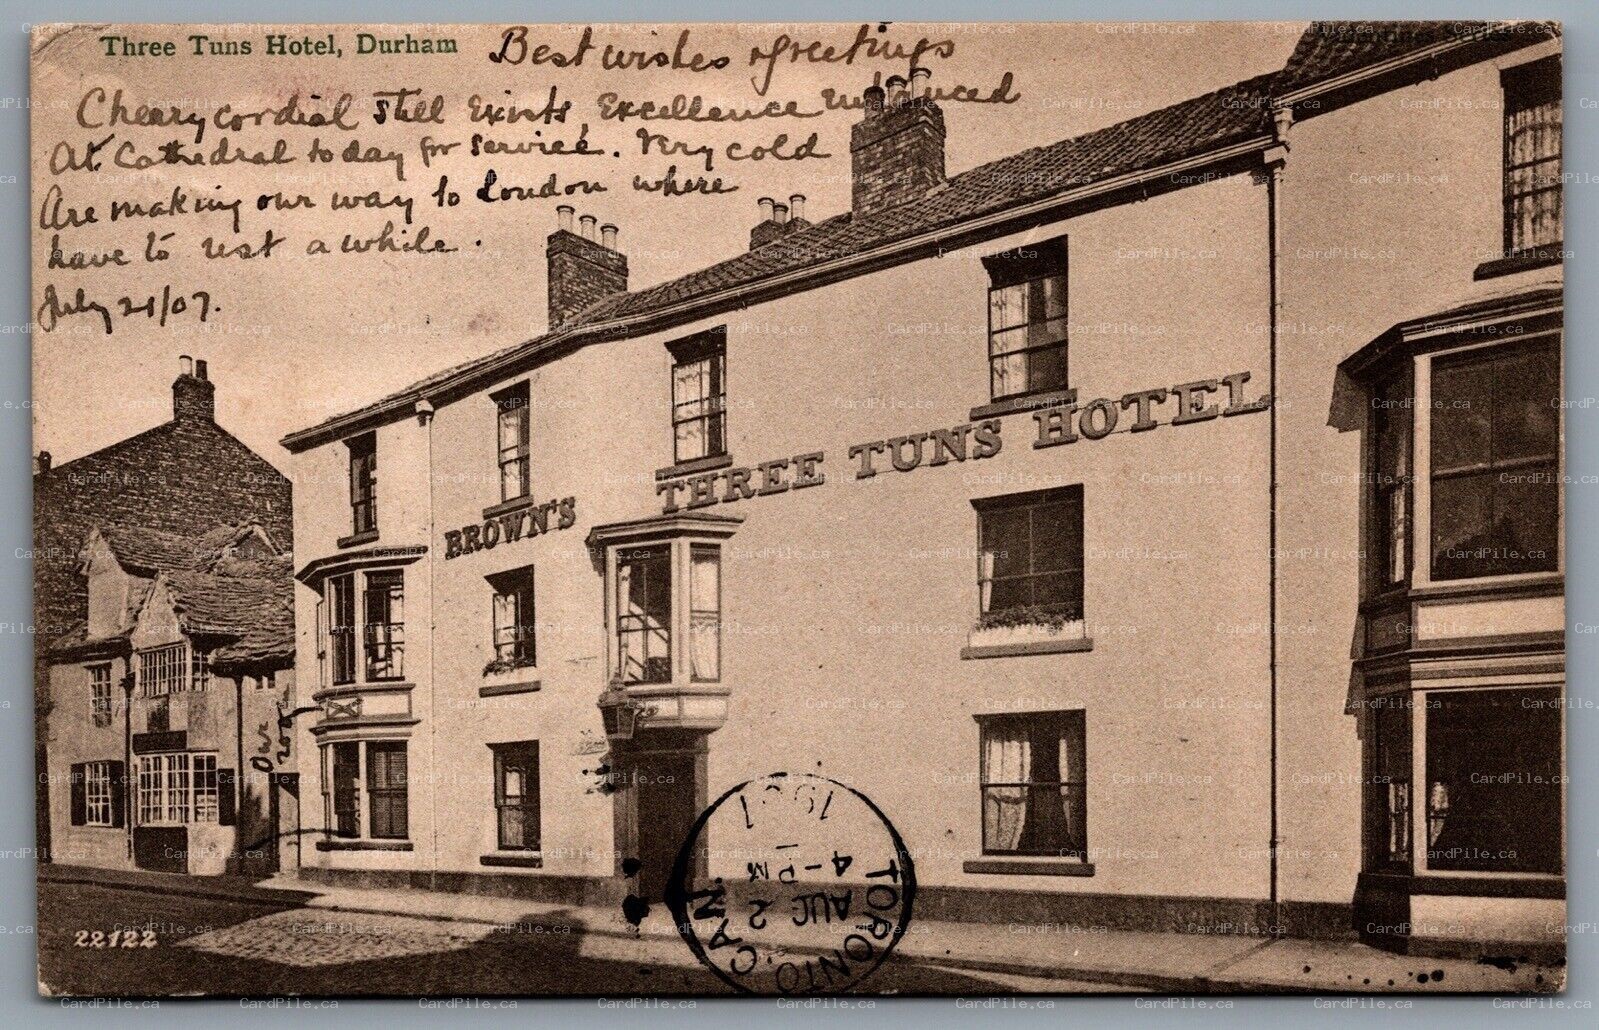 Three Tuns Hotel, Durham
Best wishes & greetings
Cheary cordial still exists, Excellence
At Cathedral today for service. Very cold
Are making our way to London where
have to rest a while.
July 21/07.
BROWN'S THREE TUNS HOTEL
Our
room
TORONTO. CAN.
4-PM
AUG 2
1907
22122
CardPile.ca